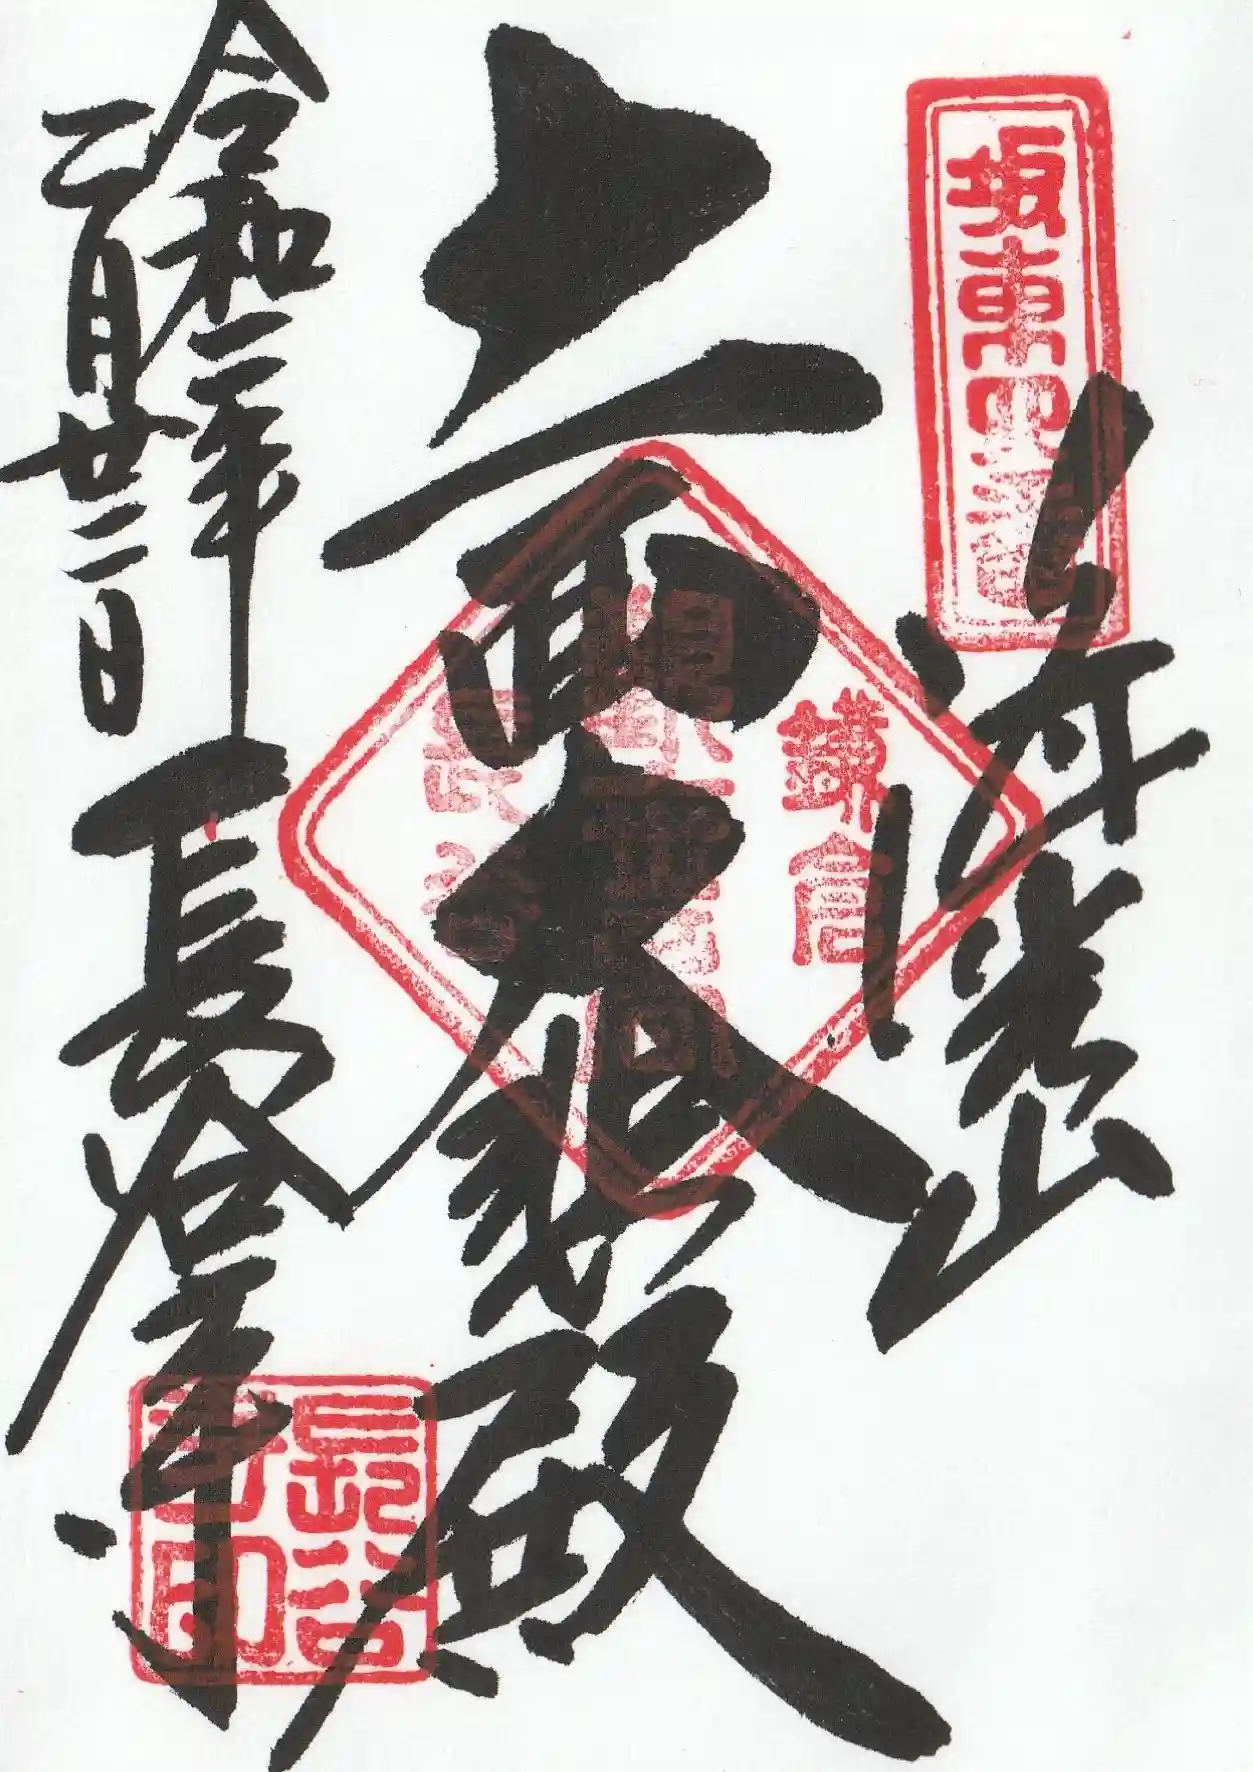 坂東四番
海光山
十一面大悲殿
鎌倉
長谷
令和二年
二月廿二日
長谷寺
長谷寺印